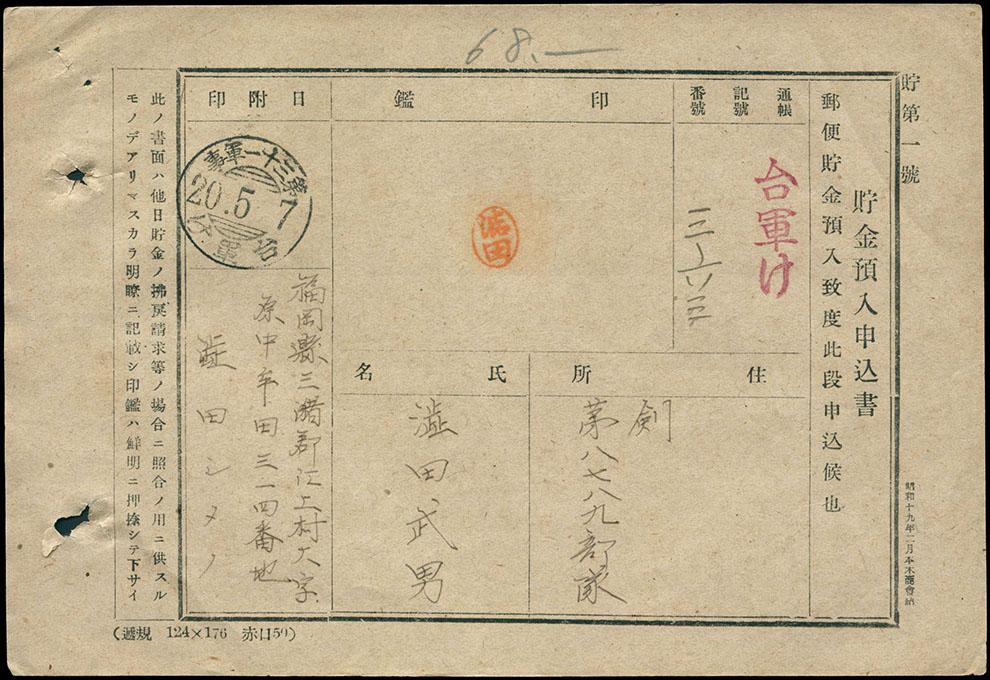 68.—
貯第一號
貯金預入申込書
郵便貯金預入致度此段申込候也
通帳
記號
番號
台軍け
三一六三三
印鑑
澁田
日附印
第三十一軍事
20.5.7
台軍
住所
剣
第八七八九部隊
氏名
澁田武男
福岡縣三潴郡江上村大字
原中牟田三一四番地
澁田シメノ
此ノ書面ハ他日貯金ノ拂戾請求等ノ場合ニ照合ノ用ニ供スル
モノデアリマスカラ明瞭ニ記載シ印鑑ハ鮮明ニ押捺シテ下サイ
(遞規 124×176 赤口50)
昭和十九年二月